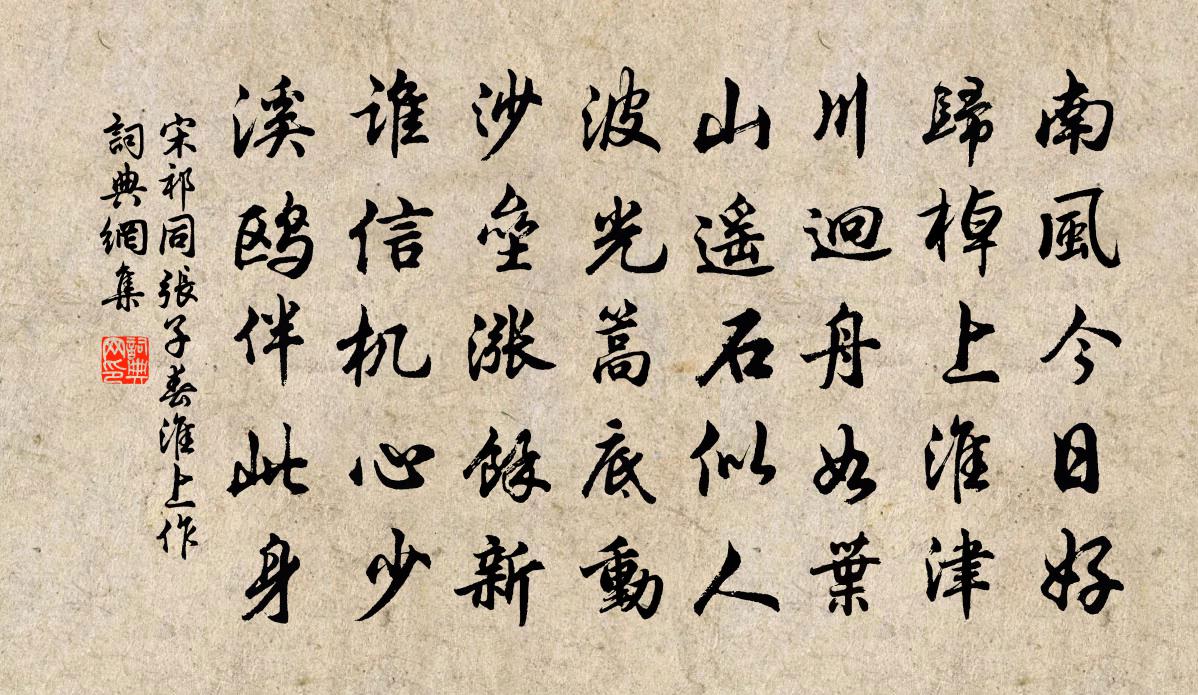 南風今日好
歸棹上淮津
川迴舟如葉
山遥石似人
波光蒿底動
沙壘漲餘新
谁信机心少
溪鸥伴此身
宋祁同張子春淮上作
詞典網集
詞典网印